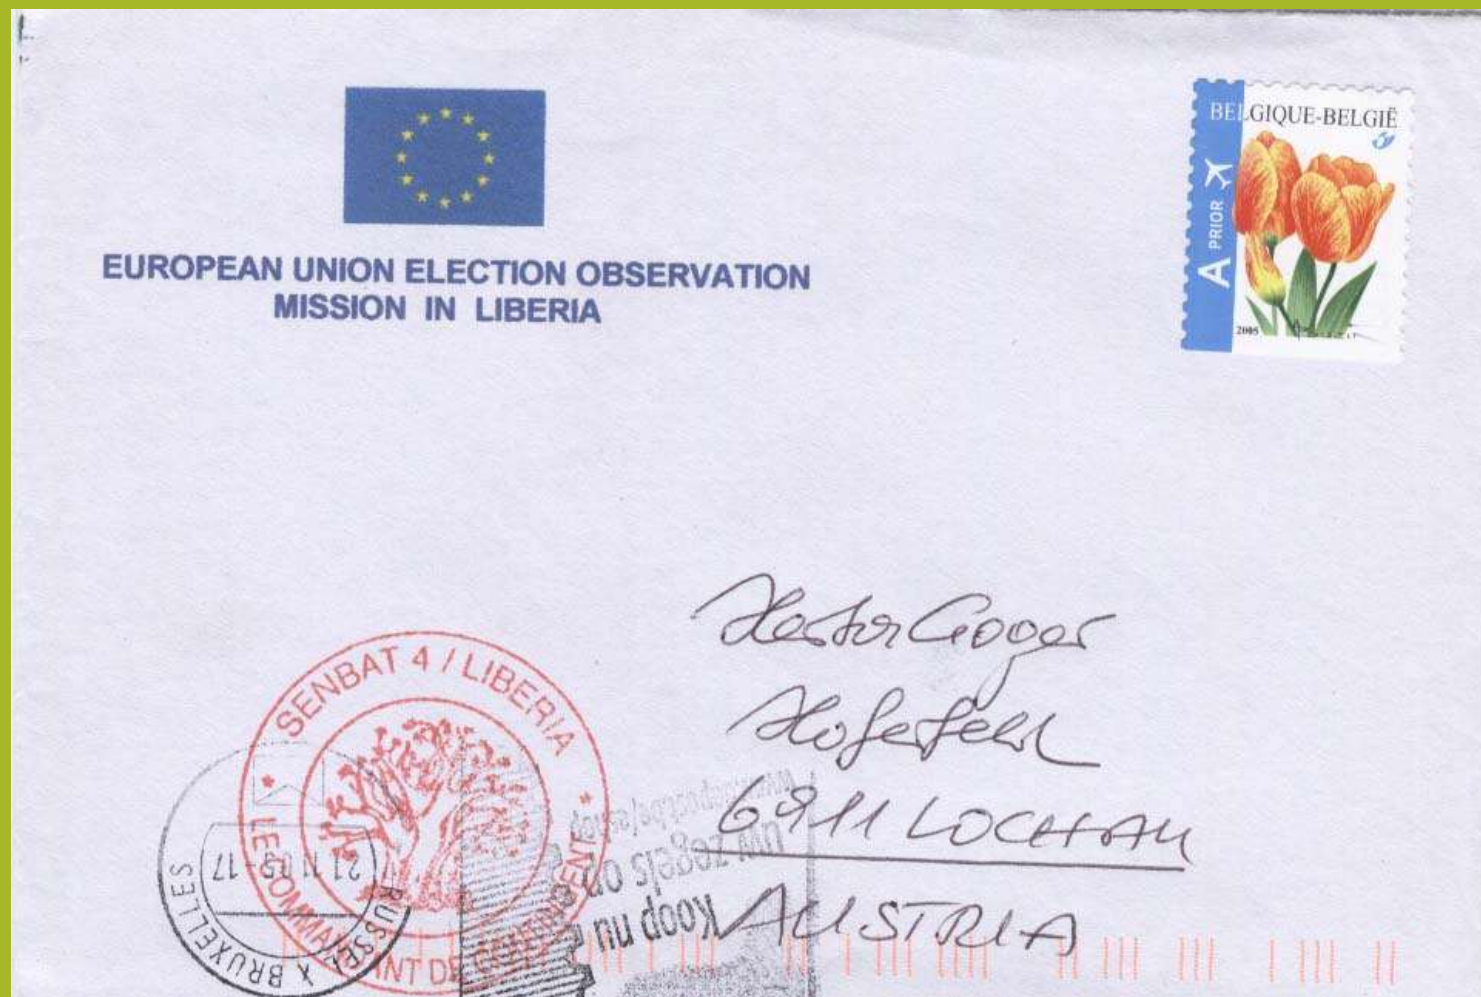 EUROPEAN UNION ELECTION OBSERVATION
MISSION IN LIBERIA
BELGIQUE-BELGIË
A PRIOR
2005
Hofefeld
6911 LOCHAU
AUSTRIA
SENBAT 4 / LIBERIA
LE COMMANDANT DE
BRUSSEL X BRUXELLES
21 11 05-17
Koop nu
uw zegels op